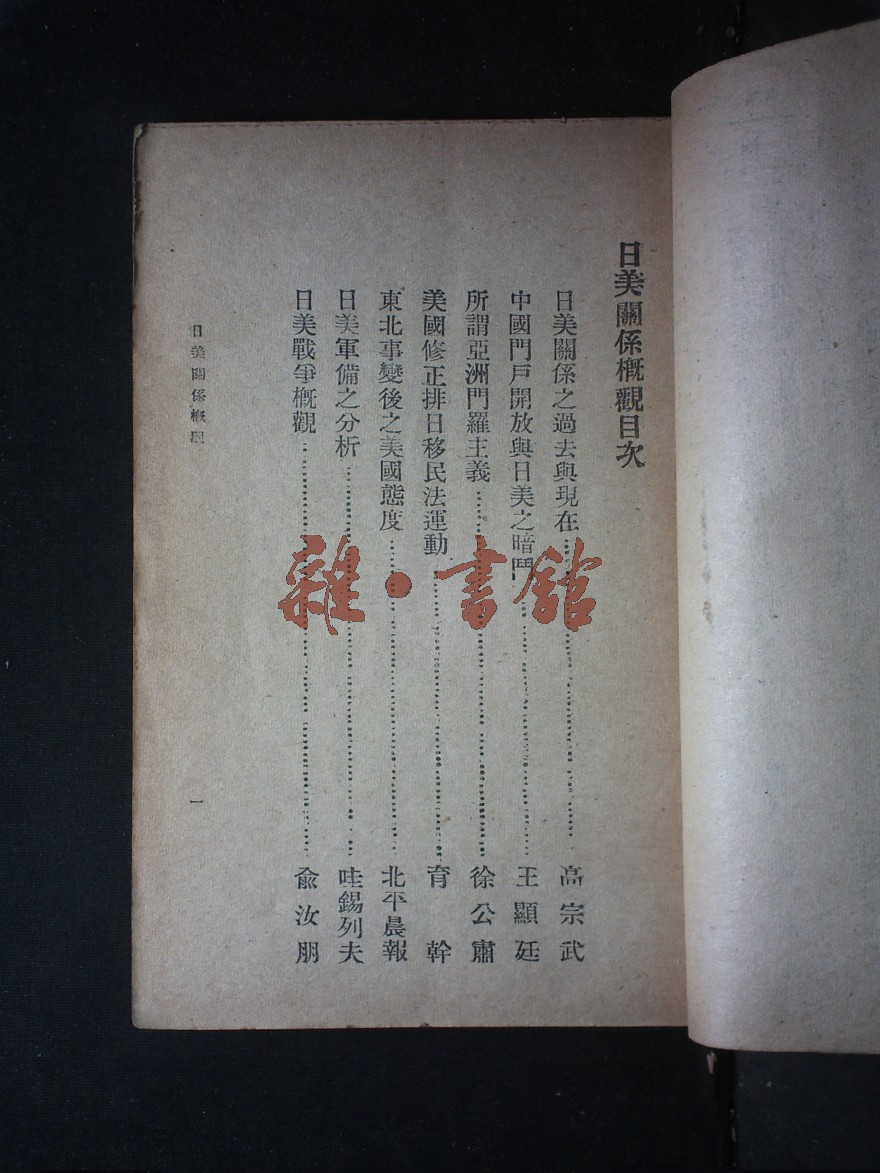 日美關係概觀目次
日美關係之過去與現在…………高宗武
中國門戶開放與日美之暗鬥…………王顯廷
所謂亞洲門羅主義…………徐公肅
美國修正排日移民法運動…………育幹
東北事變後之美國態度…………北平晨報
日美軍備之分析…………哇錫列夫
日美戰爭概觀…………俞汝朋
日美關係概觀
一
雜·書館